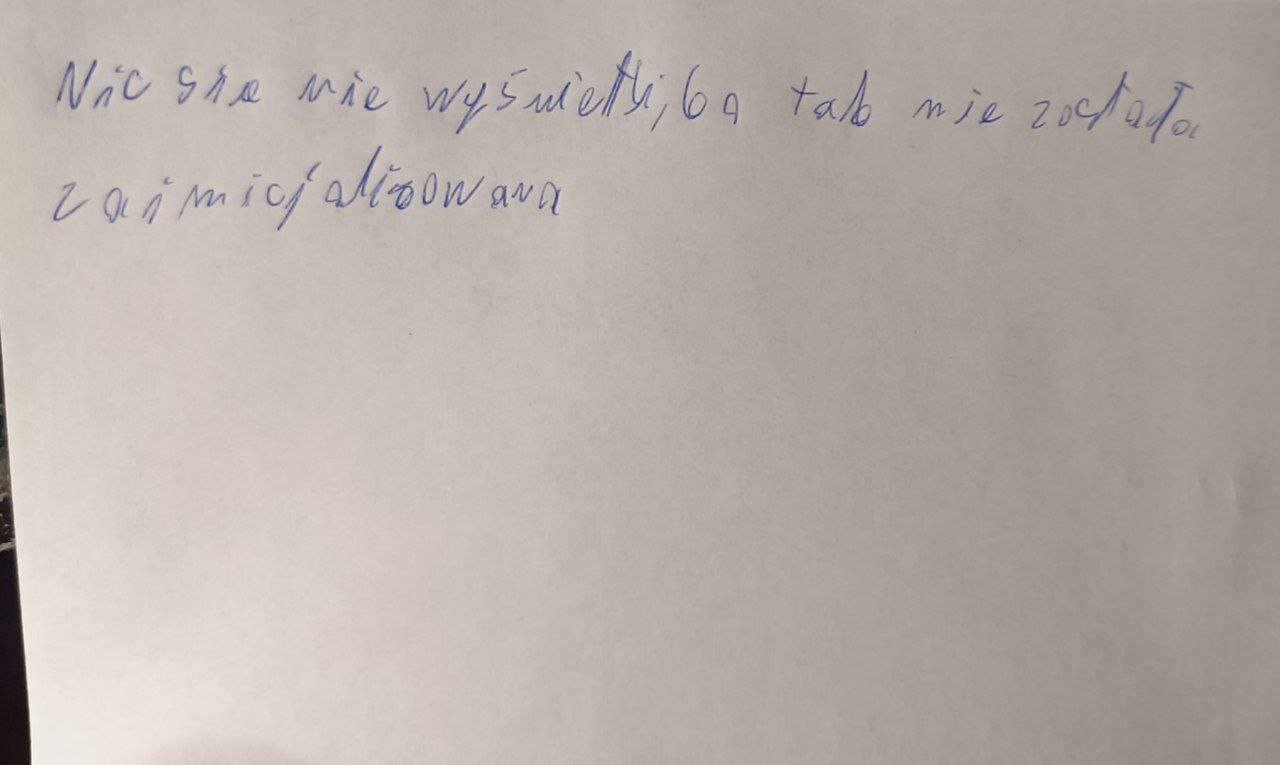 Nic sie nie wyświetli, bo tab nie została
zainicjalizowana